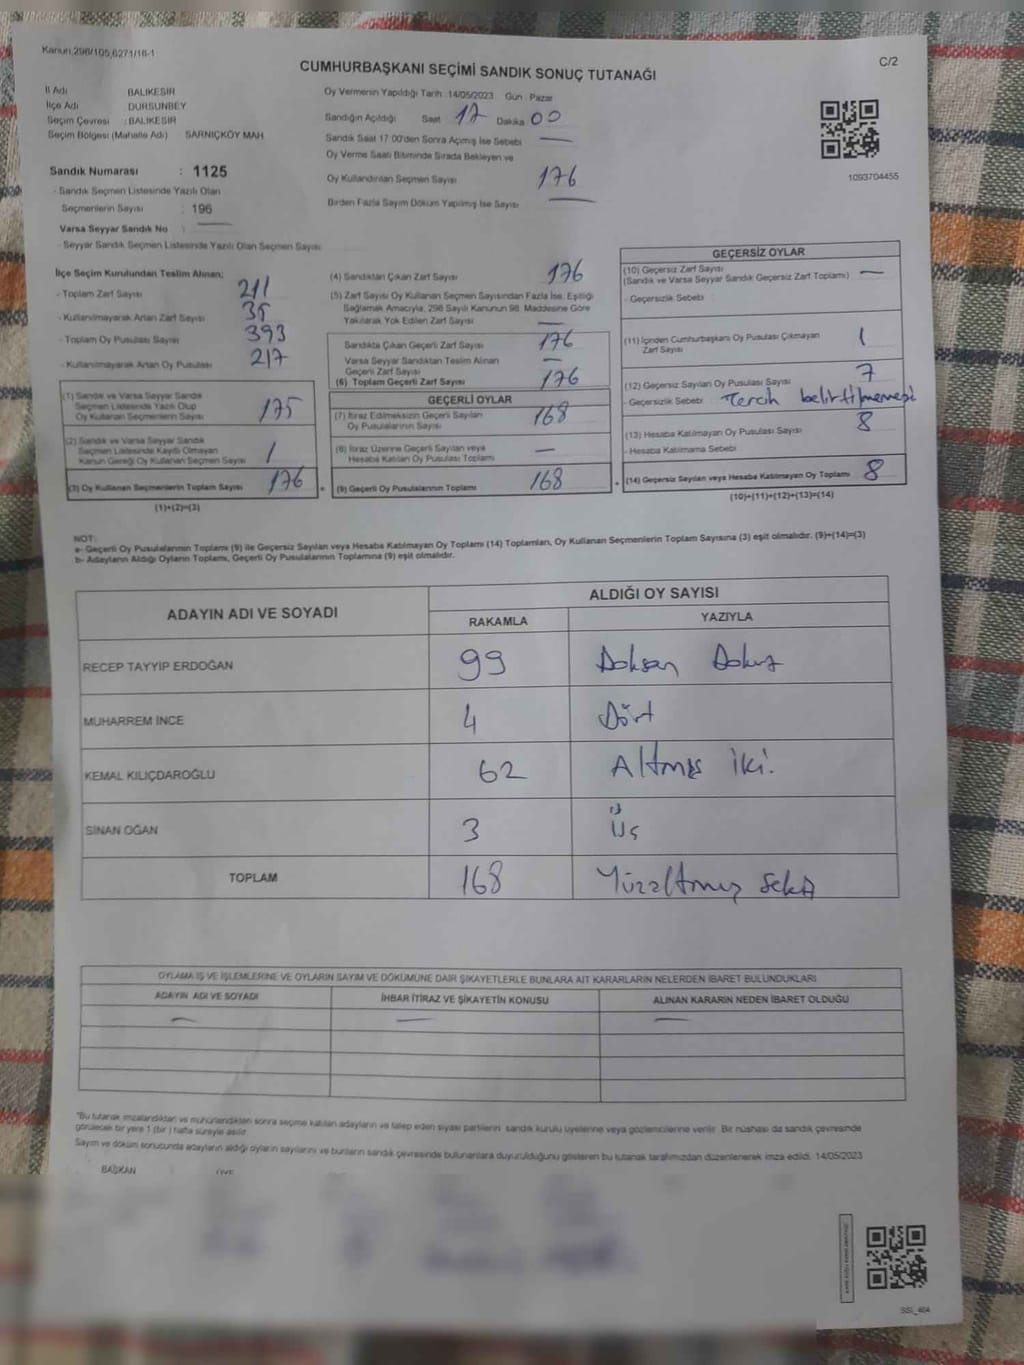 Kanun,298/105,6271/16-1
C/2
CUMHURBAŞKANI SEÇİMİ SANDIK SONUÇ TUTANAĞI
İl Adı BALIKESİR
İlçe Adı DURSUNBEY
Seçim Çevresi : BALIKESİR
Seçim Bölgesi (Mahalle Adı) SARNIÇKÖY MAH
Sandık Numarası : 1125
- Sandık Seçmen Listesinde Yazılı Olan
Seçmenlerin Sayısı : 196
Varsa Seyyar Sandık No : —
- Seyyar Sandık Seçmen Listesinde Yazılı Olan Seçmen Sayısı
Oy Vermenin Yapıldığı Tarih : 14/05/2023 Gün : Pazar
Sandığın Açıldığı Saat 17 Dakika 00
Sandık Saat 17.00'den Sonra Açımış İse Sebebi —
Oy Verme Saati Bitiminde Sırada Bekleyen ve
Oy Kullandırılan Seçmen Sayısı 176
Birden Fazla Sayım Döküm Yapılmış İse Sayısı —
1093704455
İlçe Seçim Kurulundan Teslim Alınan;
- Toplam Zarf Sayısı 211
- Kullanılmayarak Artan Zarf Sayısı 35
- Toplam Oy Pusulası Sayısı 393
- Kullanılmayarak Artan Oy Pusulası 217
(1) Sandık ve Varsa Seyyar Sandık
Seçmen Listesinde Yazılı Olup
Oy Kullanan Seçmenlerin Sayısı 175
(2) Sandık ve Varsa Seyyar Sandık
Seçmen Listesinde Kayıtlı Olmayan
Kanun Gereği Oy Kullanan Seçmen Sayısı 1
(3) Oy Kullanan Seçmenlerin Toplam Sayısı 176
(1)+(2)=(3)
(4) Sandıktan Çıkan Zarf Sayısı 176
(5) Zarf Sayısı Oy Kullanan Seçmen Sayısından Fazla İse, Eşitliği
Sağlamak Amacıyla, 298 Sayılı Kanunun 98. Maddesine Göre
Yakılarak Yok Edilen Zarf Sayısı —
Sandıkta Çıkan Geçerli Zarf Sayısı 176
Varsa Seyyar Sandıktan Teslim Alınan
Geçerli Zarf Sayısı —
(6) Toplam Geçerli Zarf Sayısı 176
GEÇERLİ OYLAR
(7) İtiraz Edilmeksizin Geçerli Sayılan
Oy Pusulalarının Sayısı 168
(8) İtiraz Üzerine Geçerli Sayılan veya
Hesaba Katılan Oy Pusulası Toplamı —
= (9) Geçerli Oy Pusulalarının Toplamı 168
GEÇERSİZ OYLAR
(10) Geçersiz Zarf Sayısı
(Sandık ve Varsa Seyyar Sandık Geçersiz Zarf Toplamı) —
- Geçersizlik Sebebi :
(11) İçinden Cumhurbaşkanı Oy Pusulası Çıkmayan
Zarf Sayısı 1
(12) Geçersiz Sayılan Oy Pusulası Sayısı 7
- Geçersizlik Sebebi : Tercih belirtilmemesi
(13) Hesaba Katılmayan Oy Pusulası Sayısı 8
- Hesaba Katılmama Sebebi
+ (14) Geçersiz Sayılan veya Hesaba Katılmayan Oy Toplamı 8
(10)+(11)+(12)+(13)=(14)
NOT:
a- Geçerli Oy Pusulalarının Toplamı (9) ile Geçersiz Sayılan veya Hesaba Katılmayan Oy Toplamı (14) Toplamları, Oy Kullanan Seçmenlerin Toplam Sayısına (3) eşit olmalıdır. (9)+(14)=(3)
b- Adayların Aldığı Oyların Toplamı, Geçerli Oy Pusulalarının Toplamına (9) eşit olmalıdır.
ADAYIN ADI VE SOYADI ALDIĞI OY SAYISI
RAKAMLA YAZIYLA
RECEP TAYYİP ERDOĞAN 99 Doksan Dokuz
MUHARREM İNCE 4 Dört
KEMAL KILIÇDAROĞLU 62 Altmış İki.
SİNAN OĞAN 3 Üç
TOPLAM 168 Yüzaltmış Sekiz
OYLAMA İŞ VE İŞLEMLERİNE VE OYLARIN SAYIM VE DÖKÜMÜNE DAİR ŞİKAYETLERLE BUNLARA AİT KARARLARIN NELERDEN İBARET BULUNDUKLARI
ADAYIN ADI VE SOYADI İHBAR İTİRAZ VE ŞİKAYETİN KONUSU ALINAN KARARIN NEDEN İBARET OLDUĞU
— — —
"Bu tutanak imzalandıktan ve mühürlendikten sonra seçime katılan adayların ve talep eden siyasi partilerin sandık kurulu üyelerine veya gözlemcilerine verilir. Bir nüshası da sandık çevresinde
görülecek bir yere 1 (bir) hafta süreyle asılır.
Sayım ve döküm sonucunda adayların aldığı oyların sayılarını ve bunların sandık çevresinde bulunanlara duyurulduğunu gösteren bu tutanak tarafımızdan düzenlenerek imza edildi. 14/05/2023
BAŞKAN ÜYE